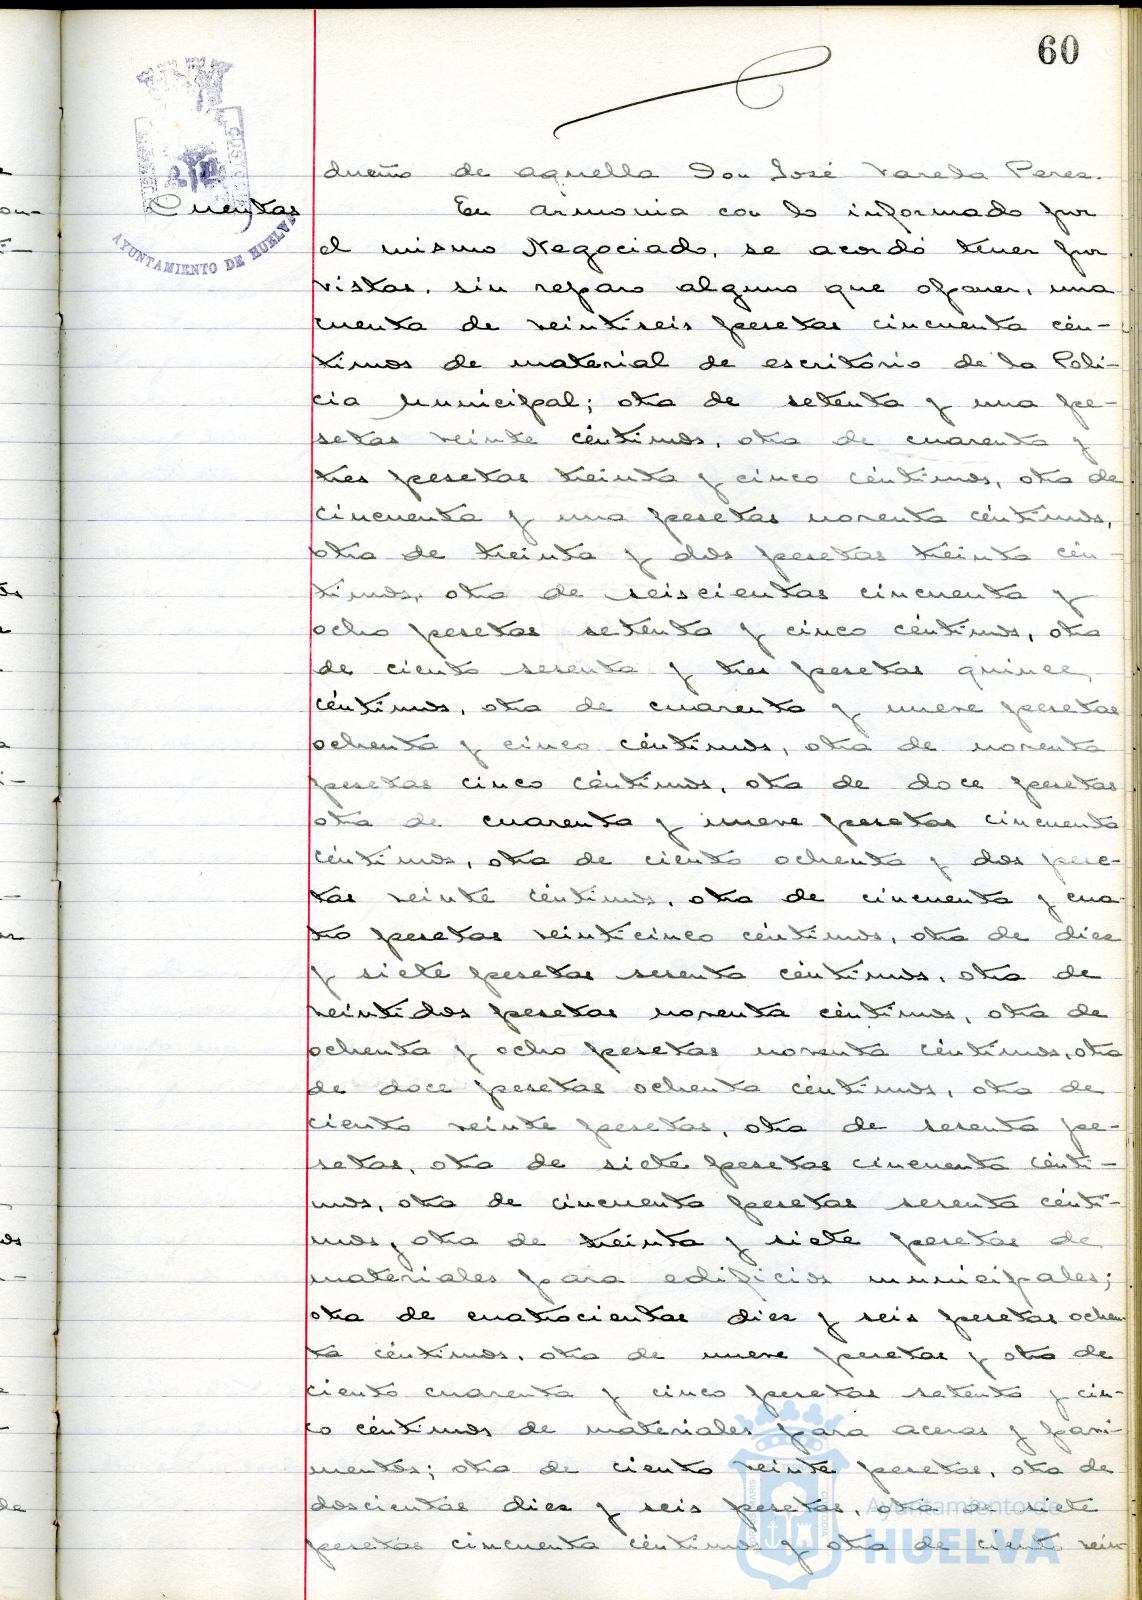 60
dueño de aquella Don José Varela Perez.
Cuentas
En armonia con lo informado por
el mismo Negociado, se acordó tener por
vistas, sin reparo alguno que oponer, una
cuenta de veintiseis pesetas cincuenta cén-
timos de material de escritorio de la Poli-
cia Municipal; otra de setenta y una pe-
setas veinte céntimos, otra de cuarenta y
tres pesetas treinta y cinco céntimos, otra de
cincuenta y una pesetas noventa céntimos,
otra de treinta y dos pesetas treinta cén-
timos, otra de seiscientas cincuenta y
ocho pesetas setenta y cinco céntimos, otra
de ciento sesenta y tres pesetas quince
céntimos, otra de cuarenta y nueve pesetas
ochenta y cinco céntimos, otra de noventa
pesetas cinco céntimos, otra de doce pesetas
otra de cuarenta y nueve pesetas cincuenta
céntimos, otra de ciento ochenta y dos pese-
tas veinte céntimos, otra de cincuenta y cua-
tro pesetas veinticinco céntimos, otra de diez
y siete pesetas sesenta céntimos, otra de
veintidos pesetas noventa céntimos, otra de
ochenta y ocho pesetas noventa céntimos, otra
de doce pesetas ochenta céntimos, otra de
ciento veinte pesetas, otra de sesenta pe-
setas, otra de siete pesetas cincuenta cénti-
mos, otra de cincuenta pesetas sesenta cénti-
mos, otra de treinta y siete pesetas de
materiales para edificios municipales;
otra de cuatrocientas diez y seis pesetas ochen-
ta céntimos, otra de nueve pesetas y otra de
ciento cuarenta y cinco pesetas setenta y cin-
co céntimos de materiales para aceras y pavi-
mentos; otra de ciento veinte pesetas, otra de
doscientas diez y seis pesetas, otra de siete
pesetas cincuenta céntimos y otra de ciento vein-
AYUNTAMIENTO DE HUELVA
Ayuntamiento de
HUELVA